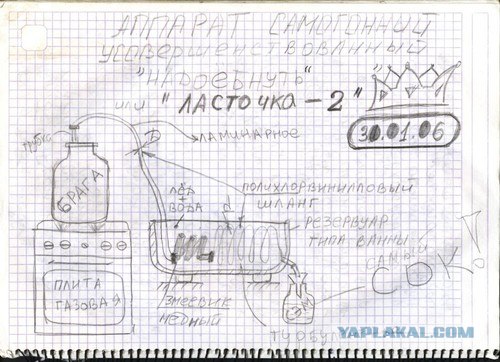 АППАРАТ САМОГОННЫЙ
УСОВЕРШЕНСТВОВАННЫЙ
или "ЛАСТОЧКА-2"
30.01.06
ТРУБКА
ЛАМИНАРНОЕ
БРАГА
ЛЁД
+
ВОДА
ПОЛИХЛОРВИНИЛЛОВЫЙ
ШЛАНГ
РЕЗЕРВУАР
ТИПА ВАННЫ
САМЫЙ
СОК!
ПЛИТА
ГАЗОВАЯ
ЗМЕЕВИК
МЕДНЫЙ
YAPLAKAL.COM